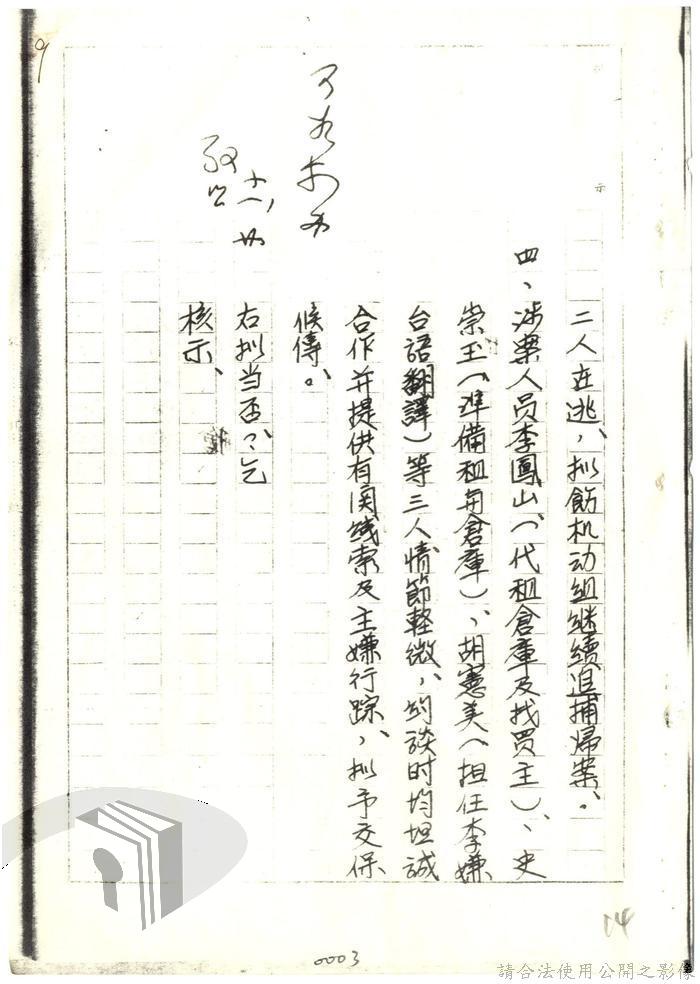 二人在逃、拟飭机动组継续追捕歸案。
四、涉案人员李鳳山（代租倉庫及找買主）、史
崇玉（準備租用倉庫）、胡憲美（担任李嫌
台語翻譯）等三人情節輕微、約談时均坦誠
合作并提供有関线索及主嫌行踪、拟予交保
候傳。
右拟当否、乞
核示、
9
示
14
0003
請合法使用公開之影像